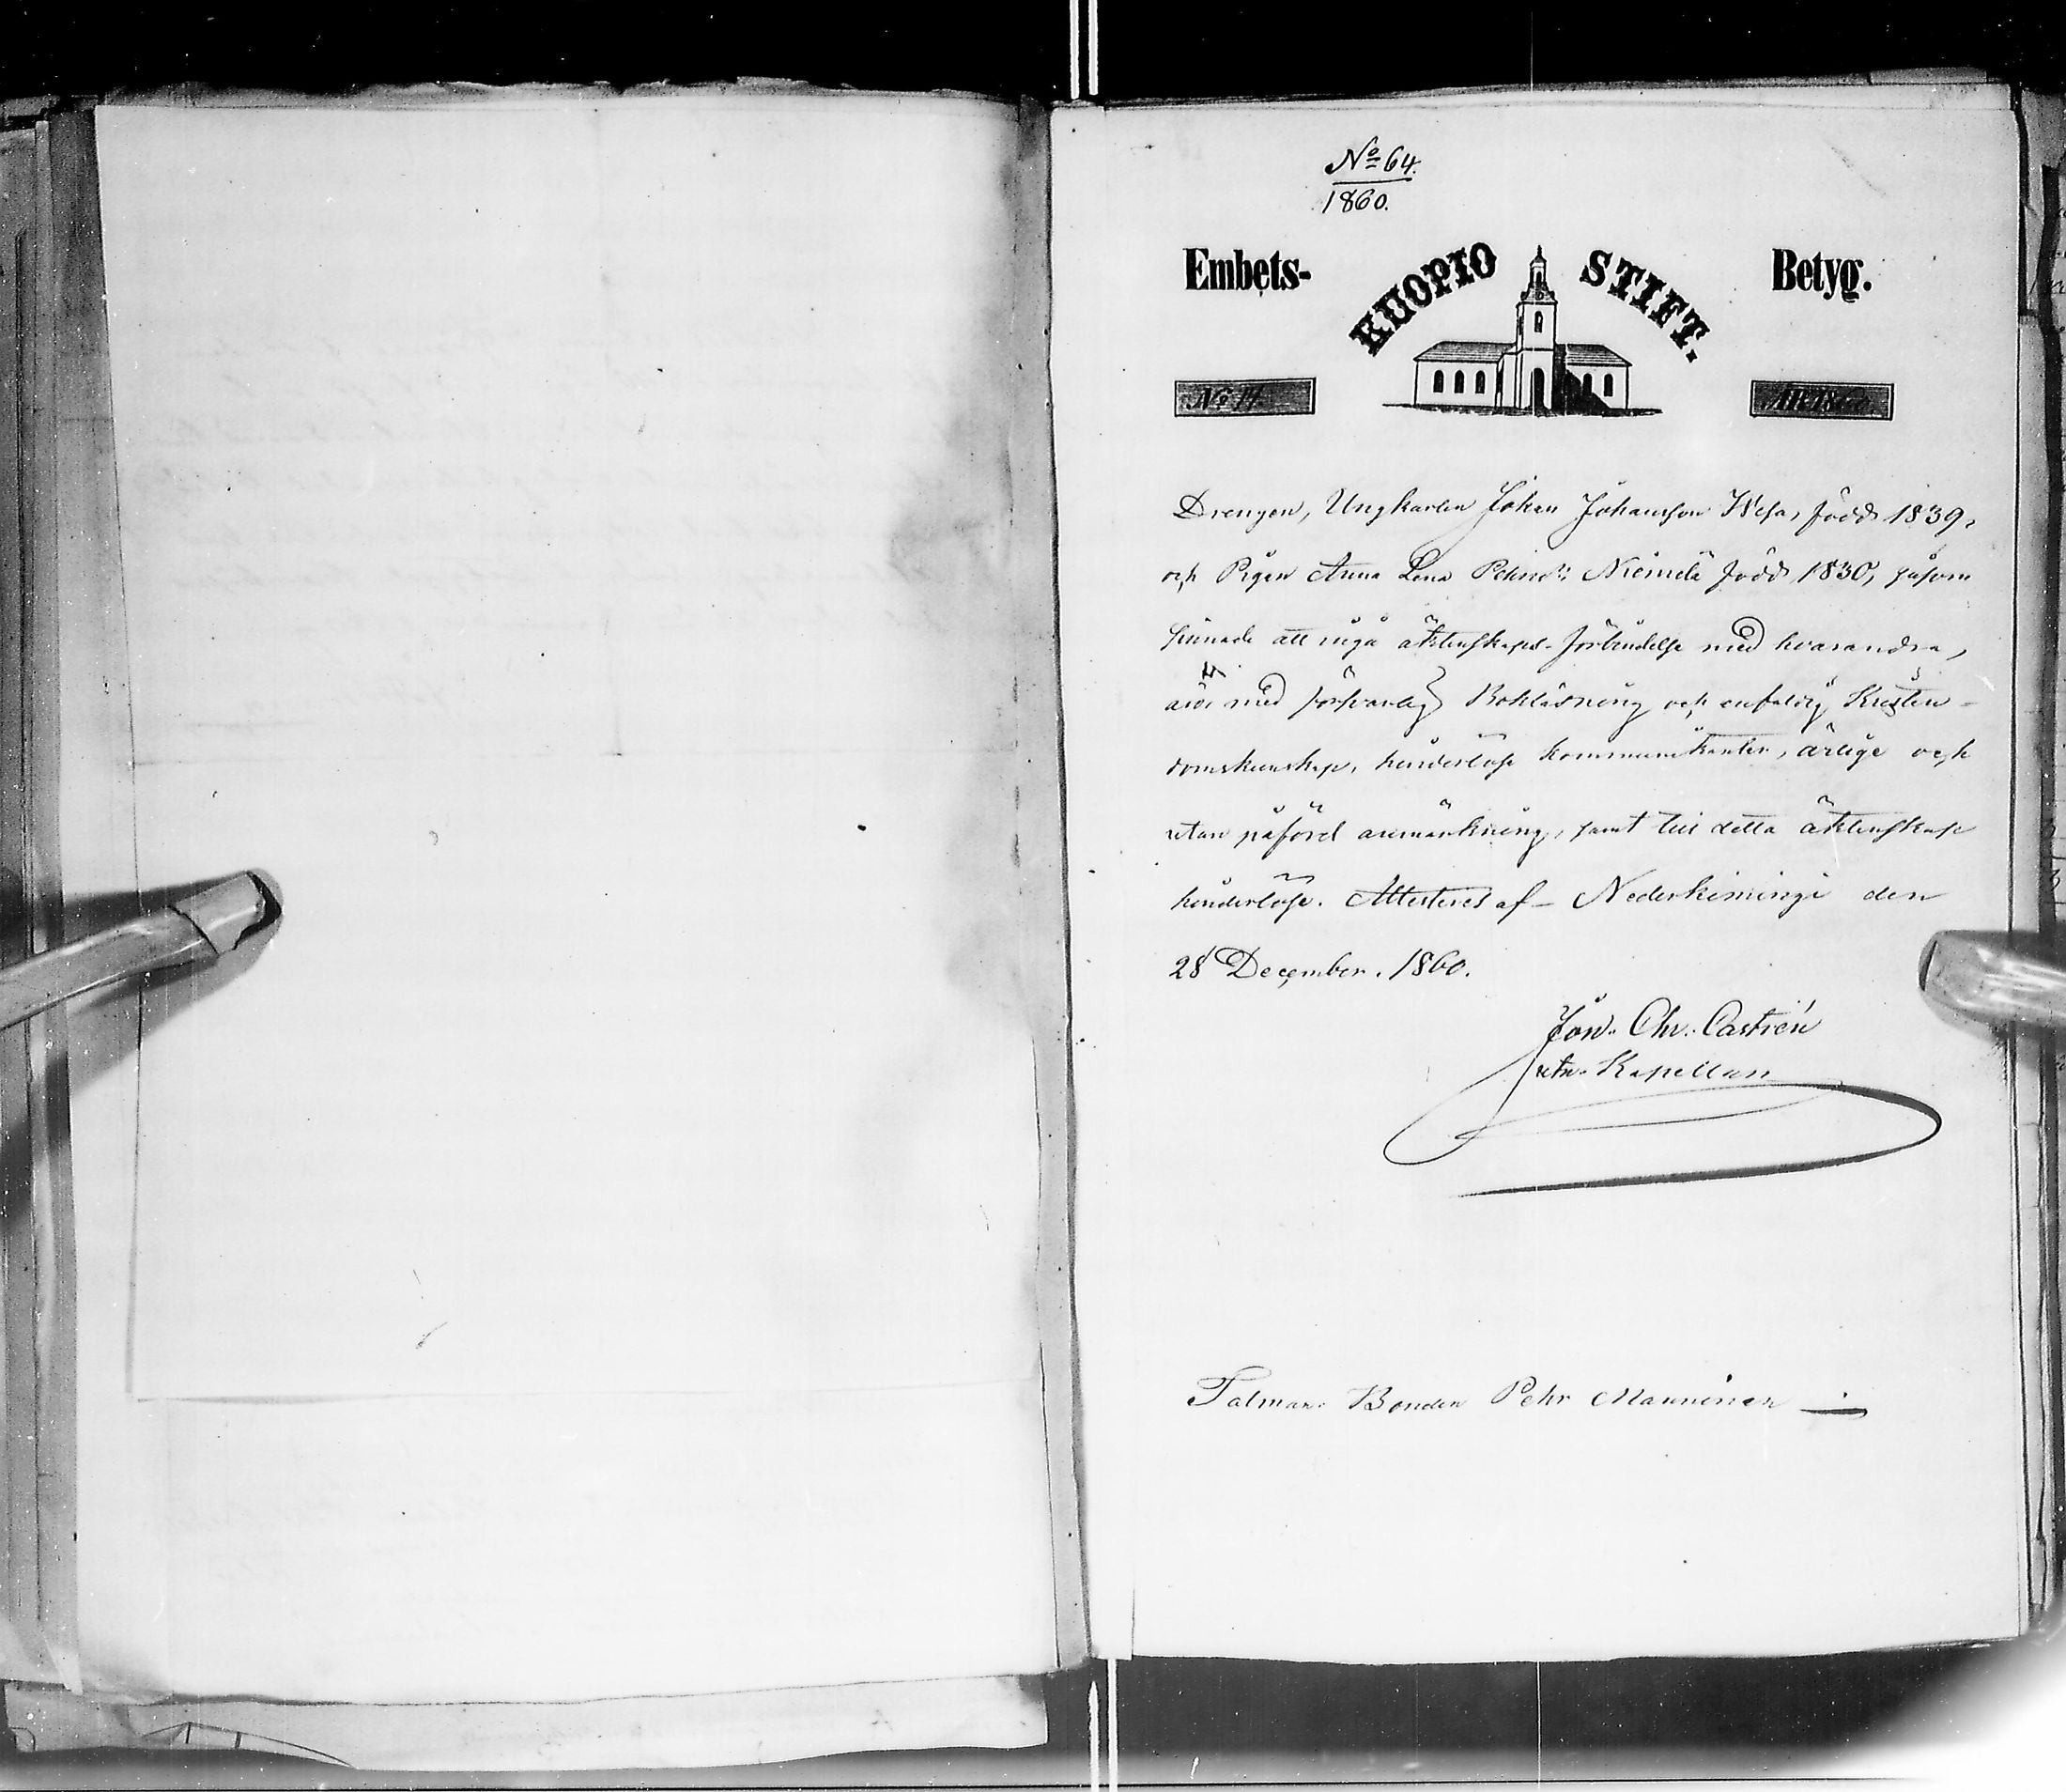 No 64.
1860.
Embets- KUOPIO STIFT. Betyg.
No ÅR 1860.
Drengen, Ungkarlen Johan Johansson Wesa, född 1839,
och Pigan Anna Lena Pehrsd:r Niemelä född 1830, såsom
sinnade att ingå äktenskaps-förbindelse med hvarandra,
äro med försvarlig Bokläsning och enfaldig Kristen-
domskunskap, hinderlöse kommunikanter, ärlige och
utan påförd anmärkning, samt till detta äktenskap
hinderlöse. Attesteres af Nederkiminge den
28 December. 1860.
Jon. Chr. Castrén
Kapellan
Talman: Bonden Pehr Manninen